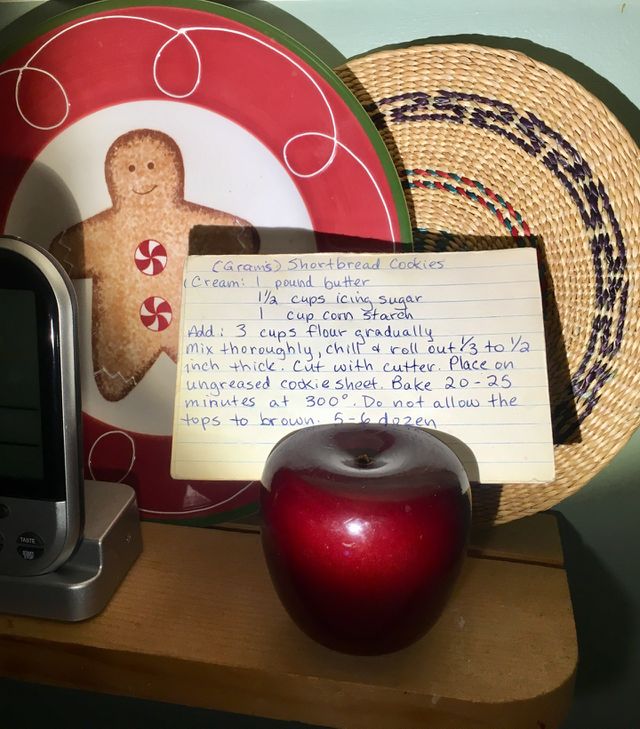 (Grams) Shortbread Cookies
Cream: 1 pound butter
1 1/2 cups icing sugar
1 cup corn starch
Add: 3 cups flour gradually
Mix thoroughly, chill & roll out 1/3 to 1/2
inch thick. Cut with cutter. Place on
ungreased cookie sheet. Bake 20-25
minutes at 300°. Do not allow the
tops to brown. 5-6 dozen
TASTE